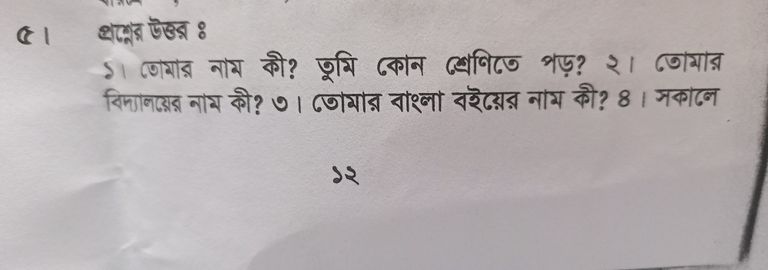 ৫। প্রশ্নের উত্তর ঃ
১। তোমার নাম কী? তুমি কোন শ্রেণিতে পড়? ২। তোমার
বিদ্যালয়ের নাম কী? ৩। তোমার বাংলা বইয়ের নাম কী? ৪। সকালে
১২